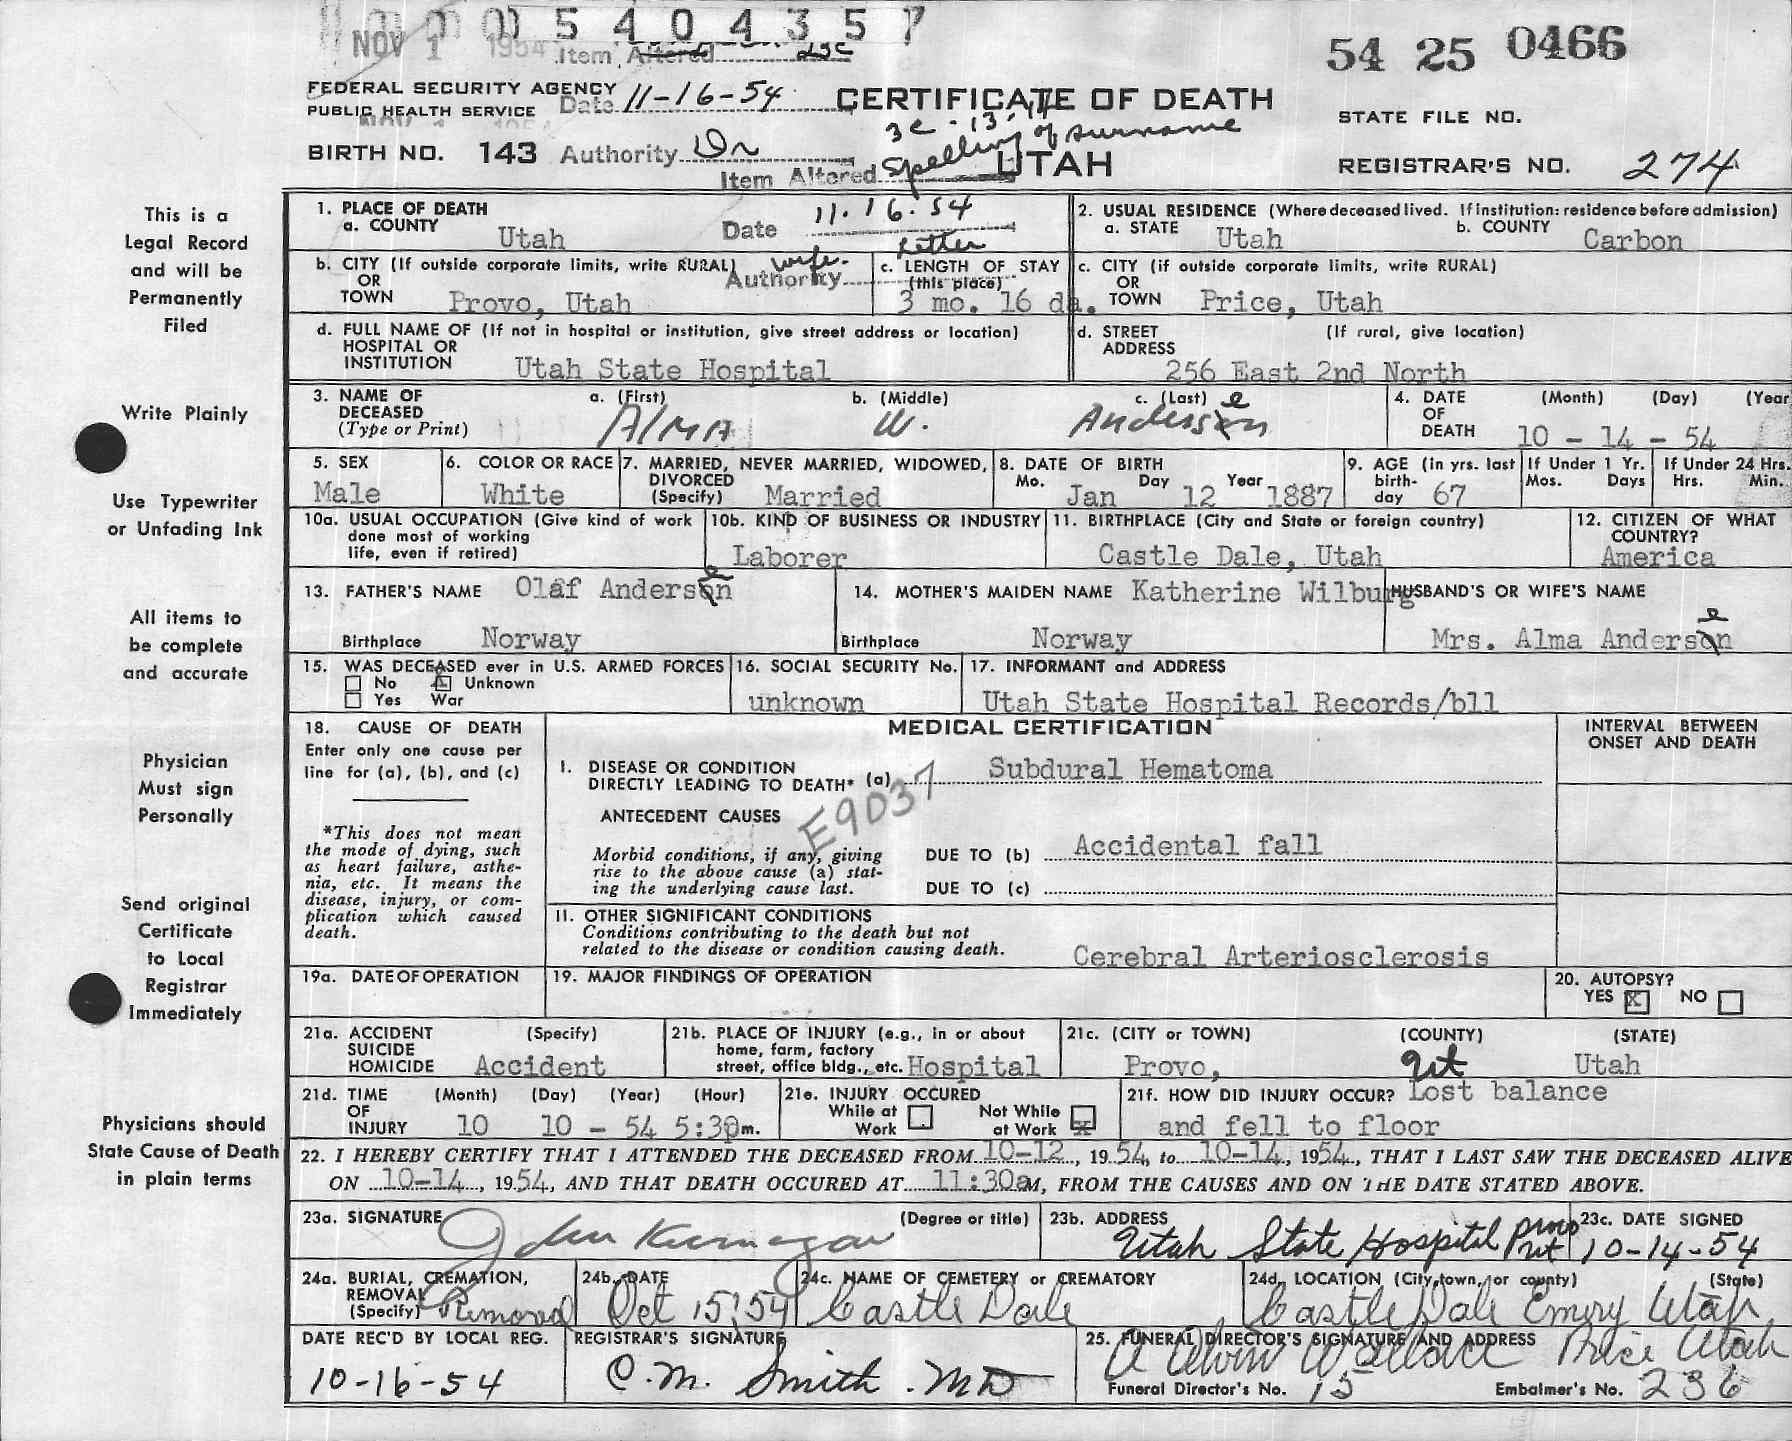 0 0 0 5 4 0 4 3 5 7
NOV 1 1954 Item Altered 23c
54 25 0466
FEDERAL SECURITY AGENCY
PUBLIC HEALTH SERVICE Date 11-16-54
CERTIFICATE OF DEATH
STATE FILE NO.
3c - 13-14
BIRTH NO. 143 Authority Dr
Item Altered Spelling of surname
UTAH
REGISTRAR'S NO. 274
This is a
Legal Record
and will be
Permanently
Filed
Write Plainly
Use Typewriter
or Unfading Ink
All items to
be complete
and accurate
Physician
Must sign
Personally
Send original
Certificate
to Local
Registrar
Immediately
Physicians should
State Cause of Death
in plain terms
1. PLACE OF DEATH
a. COUNTY Utah
Date 11-16-54
Authority wife- Letter
2. USUAL RESIDENCE (Where deceased lived. If institution: residence before admission)
a. STATE Utah b. COUNTY Carbon
b. CITY (If outside corporate limits, write RURAL)
OR
TOWN Provo, Utah
c. LENGTH OF STAY
(this place)
3 mo. 16 da.
c. CITY (if outside corporate limits, write RURAL)
OR
TOWN Price, Utah
d. FULL NAME OF (If not in hospital or institution, give street address or location)
HOSPITAL OR
INSTITUTION Utah State Hospital
d. STREET (If rural, give location)
ADDRESS
256 East 2nd North
3. NAME OF
DECEASED
(Type or Print)
a. (First) b. (Middle) c. (Last)
Alma W. Andersen
4. DATE (Month) (Day) (Year
OF
DEATH 10 - 14 - 54
5. SEX
Male
6. COLOR OR RACE
White
7. MARRIED, NEVER MARRIED, WIDOWED,
DIVORCED
(Specify) Married
8. DATE OF BIRTH
Mo. Day Year
Jan 12 1887
9. AGE (in yrs. last
birth-
day 67
If Under 1 Yr.
Mos. Days
If Under 24 Hrs.
Hrs. Min.
10a. USUAL OCCUPATION (Give kind of work
done most of working
life, even if retired)
10b. KIND OF BUSINESS OR INDUSTRY
Laborer
11. BIRTHPLACE (City and State or foreign country)
Castle Dale, Utah
12. CITIZEN OF WHAT
COUNTRY?
America
13. FATHER'S NAME Olaf Andersen
Birthplace Norway
14. MOTHER'S MAIDEN NAME Katherine Wilburg
Birthplace Norway
HUSBAND'S OR WIFE'S NAME
Mrs. Alma Andersen
15. WAS DECEASED ever in U.S. ARMED FORCES
No Unknown
Yes War
16. SOCIAL SECURITY No.
unknown
17. INFORMANT and ADDRESS
Utah State Hospital Records/bll
18. CAUSE OF DEATH
Enter only one cause per
line for (a), (b), and (c)
*This does not mean
the mode of dying, such
as heart failure, asthe-
nia, etc. It means the
disease, injury, or com-
plication which caused
death.
MEDICAL CERTIFICATION
INTERVAL BETWEEN
ONSET AND DEATH
I. DISEASE OR CONDITION
DIRECTLY LEADING TO DEATH* (a) Subdural Hematoma
E9037
ANTECEDENT CAUSES
Morbid conditions, if any, giving
rise to the above cause (a) stat-
ing the underlying cause last.
DUE TO (b) Accidental fall
DUE TO (c)
II. OTHER SIGNIFICANT CONDITIONS
Conditions contributing to the death but not
related to the disease or condition causing death.
Cerebral Arteriosclerosis
19a. DATE OF OPERATION
19. MAJOR FINDINGS OF OPERATION
20. AUTOPSY?
YES X NO
21a. ACCIDENT (Specify)
SUICIDE
HOMICIDE Accident
21b. PLACE OF INJURY (e.g., in or about
home, farm, factory
street, office bldg., etc. Hospital
21c. (CITY or TOWN) (COUNTY) (STATE)
Provo, Ut Utah
21d. TIME (Month) (Day) (Year) (Hour)
OF
INJURY 10 10 - 54 5:30pm.
21e. INJURY OCCURED
While at
Work
Not While
at Work X
21f. HOW DID INJURY OCCUR? Lost balance
and fell to floor
22. I HEREBY CERTIFY THAT I ATTENDED THE DECEASED FROM 10-12, 1954, to 10-14, 1954, THAT I LAST SAW THE DECEASED ALIVE
ON 10-14, 1954, AND THAT DEATH OCCURED AT 11:30aM, FROM THE CAUSES AND ON THE DATE STATED ABOVE.
23a. SIGNATURE (Degree or title)
John
23b. ADDRESS
Utah State Hospital Provo Ut
23c. DATE SIGNED
10-14-54
24a. BURIAL, CREMATION,
REMOVAL
(Specify) Removal
24b. DATE
Oct 15, 54
24c. NAME OF CEMETERY or CREMATORY
Castle Dale
24d. LOCATION (City, town, or county) (State)
Castle Dale Emery Utah
DATE REC'D BY LOCAL REG.
10-16-54
REGISTRAR'S SIGNATURE
C. M. Smith. MD
25. FUNERAL DIRECTOR'S SIGNATURE AND ADDRESS
A Alvin Wallace Price Utah
Funeral Director's No. 15 Embalmer's No. 236